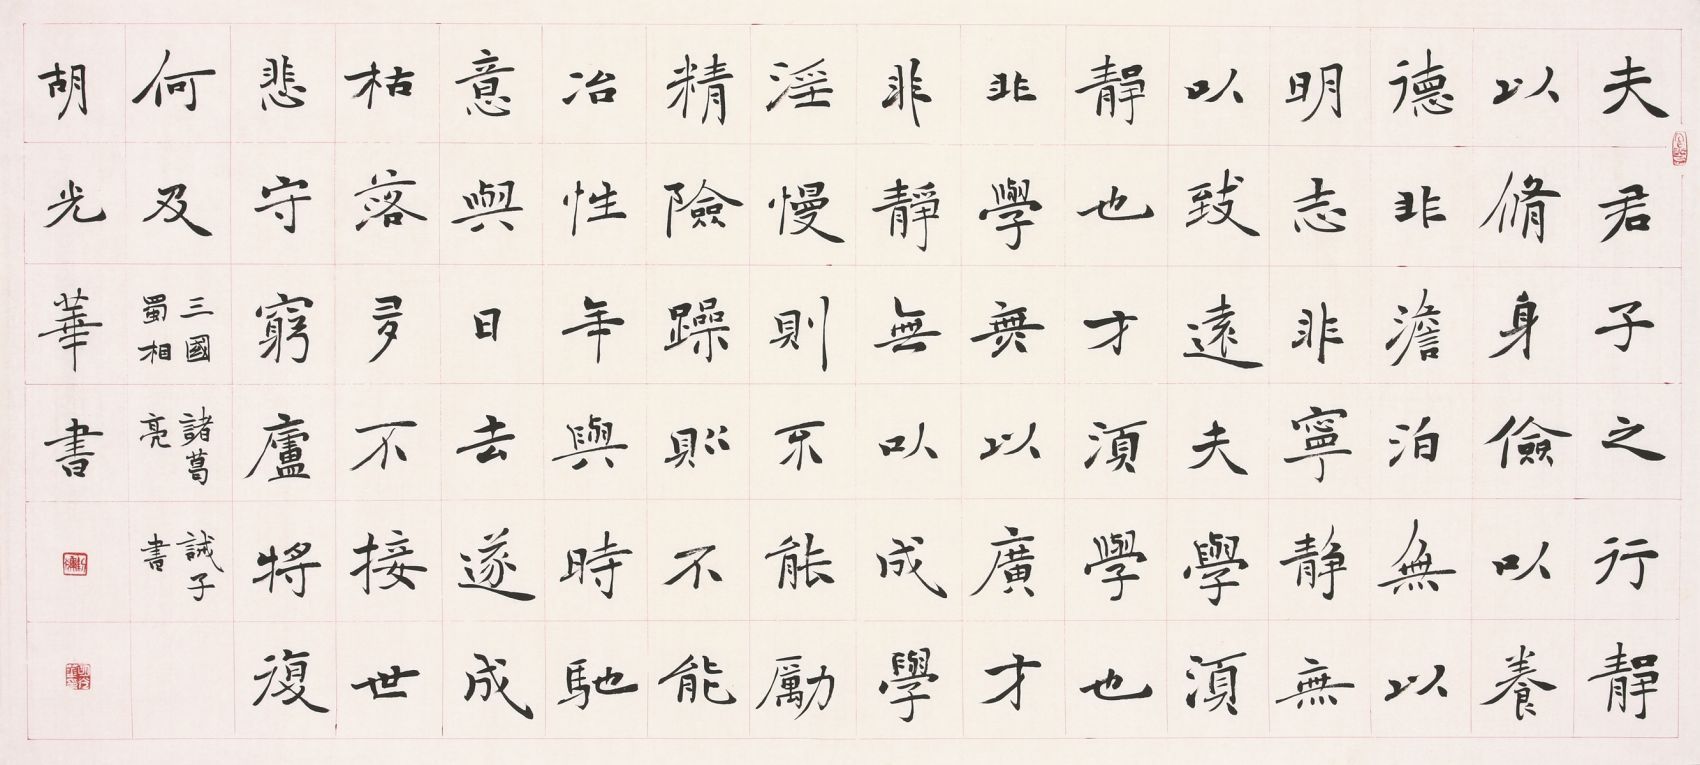 夫君子之行靜
以脩身儉以養
德非澹泊無以
明志非寧靜無
以致遠夫學須
靜也才須學也
非學無以廣才
非靜無以成學
淫慢則不能勵
精險躁則不能
冶性年與時馳
意與日去遂成
枯落多不接世
悲守窮廬將復
何及
三國
蜀相
諸葛
亮
誡子
書
胡光華書